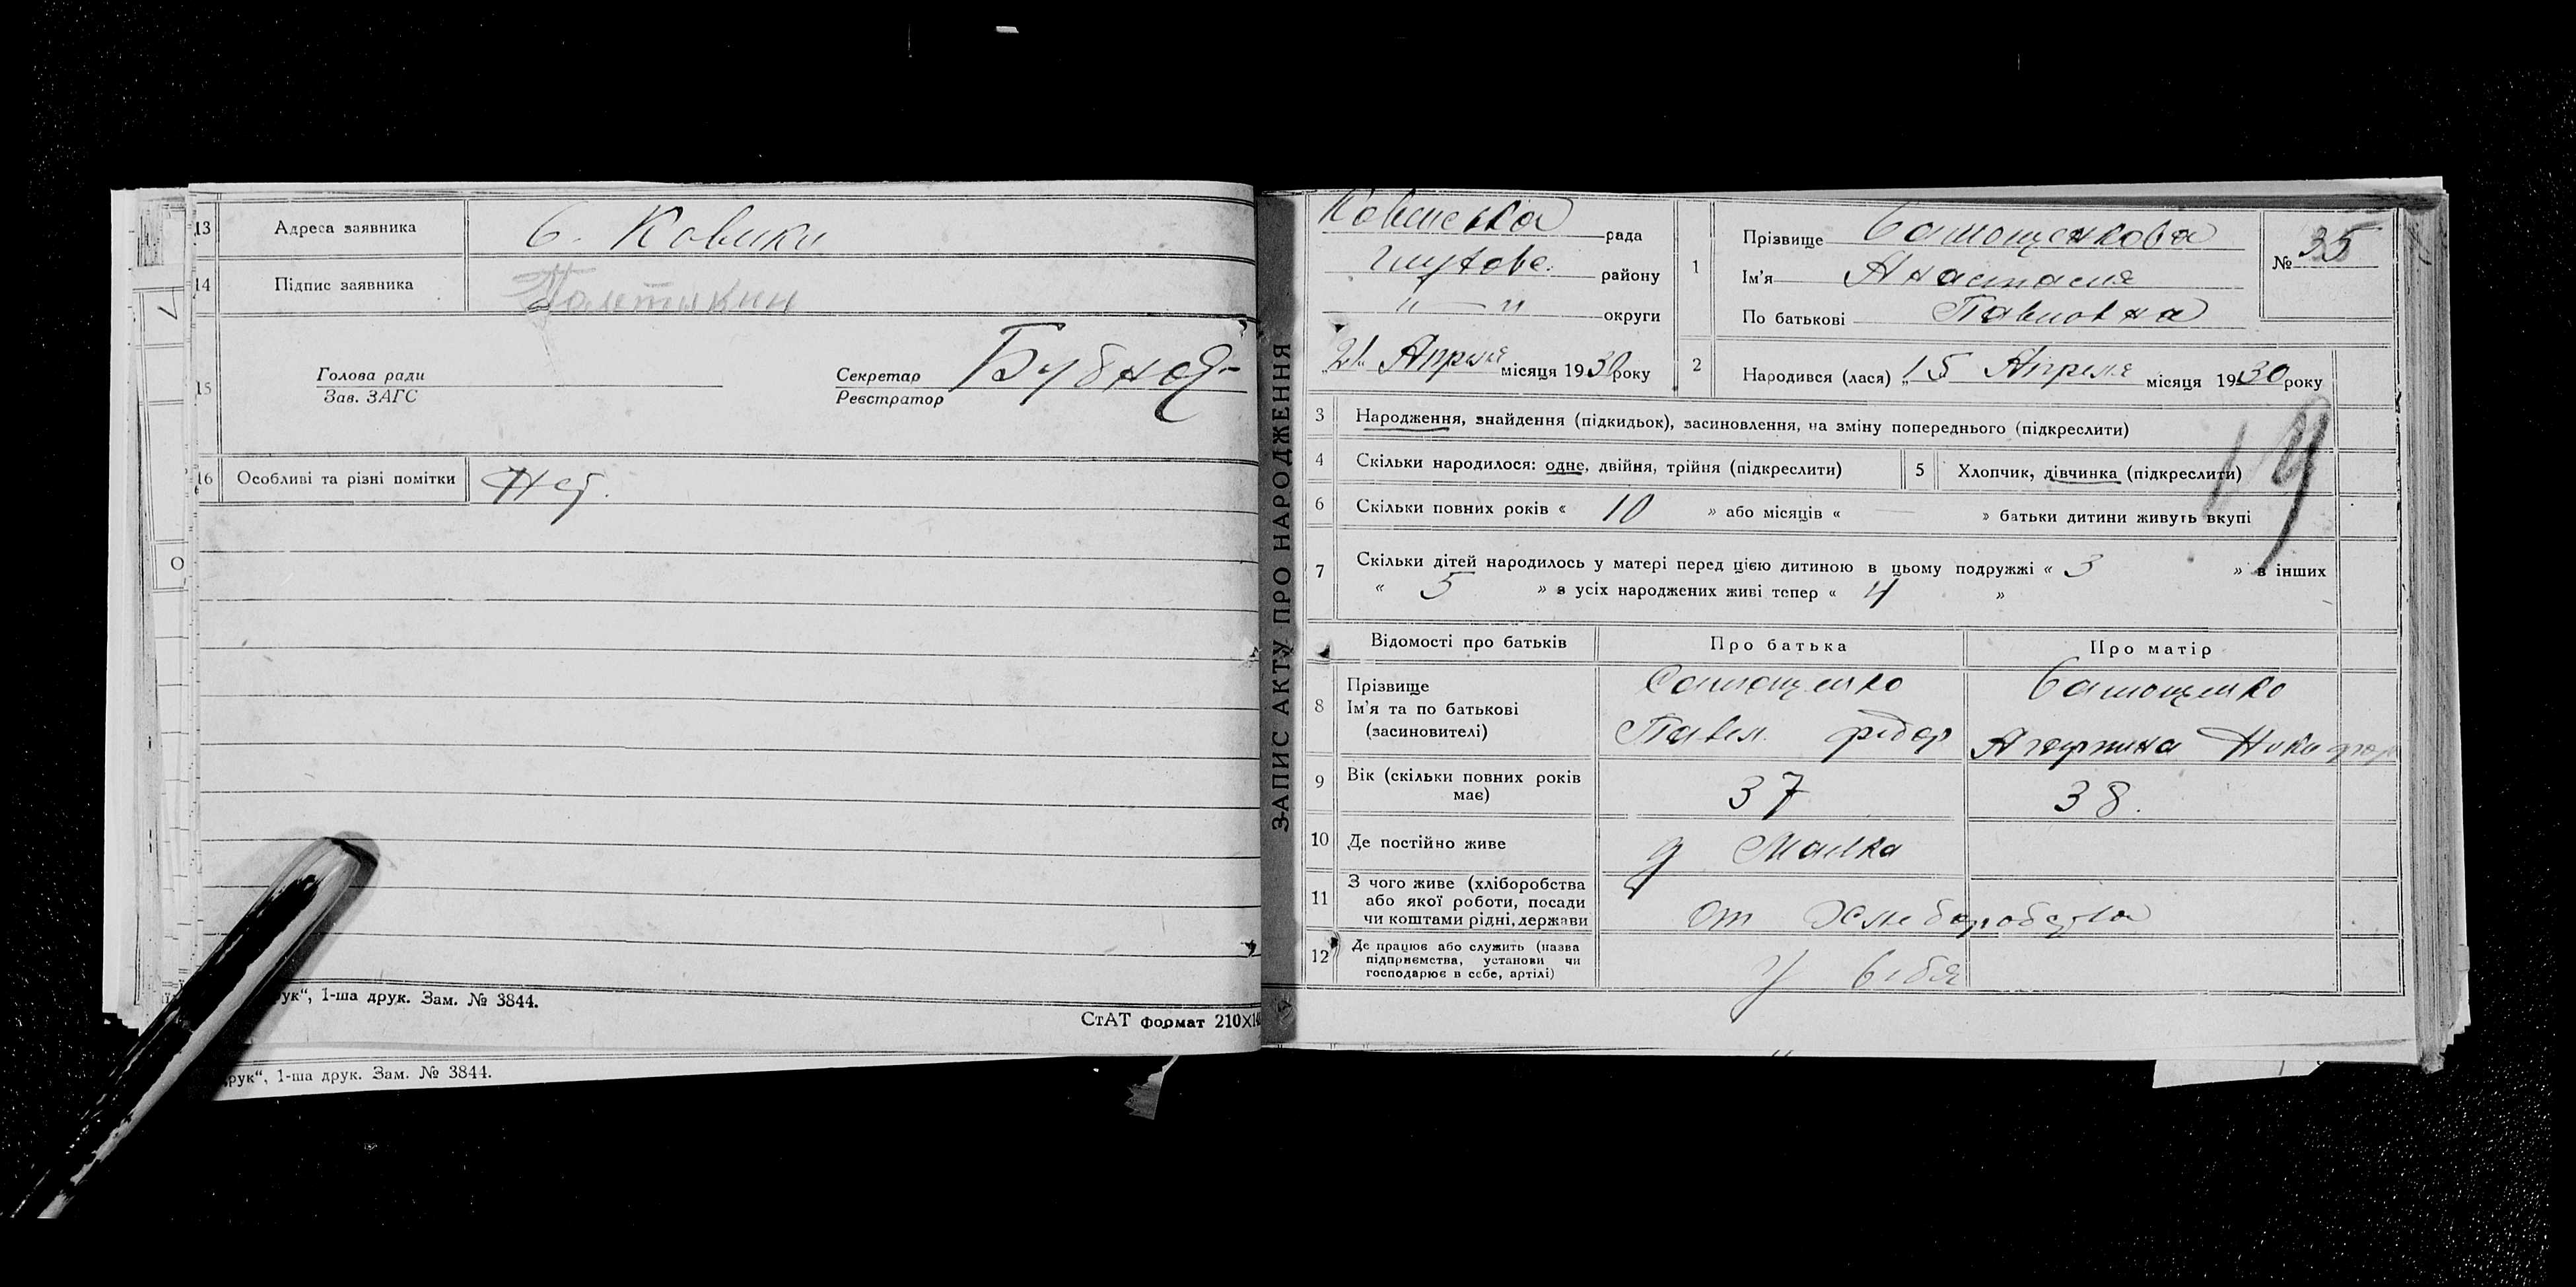 13 Адреса заявника С. Ковинки
14 Підпис заявника
15 Голова ради
Зав. ЗАГС
Секретар
Реєстратор
16 Особливі та різні помітки Нет.
О
ук“, 1-ша друк. Зам. № 3844.
СтАТ формат 210Х14
рук“, 1-ша друк. Зам. № 3844.
ЗАПИС АКТУ ПРО НАРОДЖЕННЯ
рада
району
" — " округи
21 Апреля місяця 1930 року
1 Прізвище
Ім'я Анастасия
По батькові Павловна
№ 35
2 Народився (лася) „15 Апреля місяця 1930 року
19
3 Народження, знайдення (підкидьок), засиновлення, на зміну попереднього (підкреслити)
4 Скільки народилося: одне, двійня, трійня (підкреслити)
5 Хлопчик, дівчинка (підкреслити)
6 Скільки повних років « 10 » або місяців « — » батьки дитини живуть вкупі
7 Скільки дітей народилось у матері перед цією дитиною в цьому подружжі « 3 » в інших
« 5 » з усіх народжених живі тепер « 4 »
Відомості про батьків Про батька Про матір
8 Прізвище
Ім'я та по батькові
(засиновителі)
Павел Федор
9 Вік (скільки повних років
має)
37 38.
10 Де постійно живе
11 З чого живе (хліборобства
або якої роботи, посади
чи коштами рідні, держави
от Хлеборобства
12 Де працює або служить (назва
підприємства, установи чи
господарює в себе, артілі)
У себя